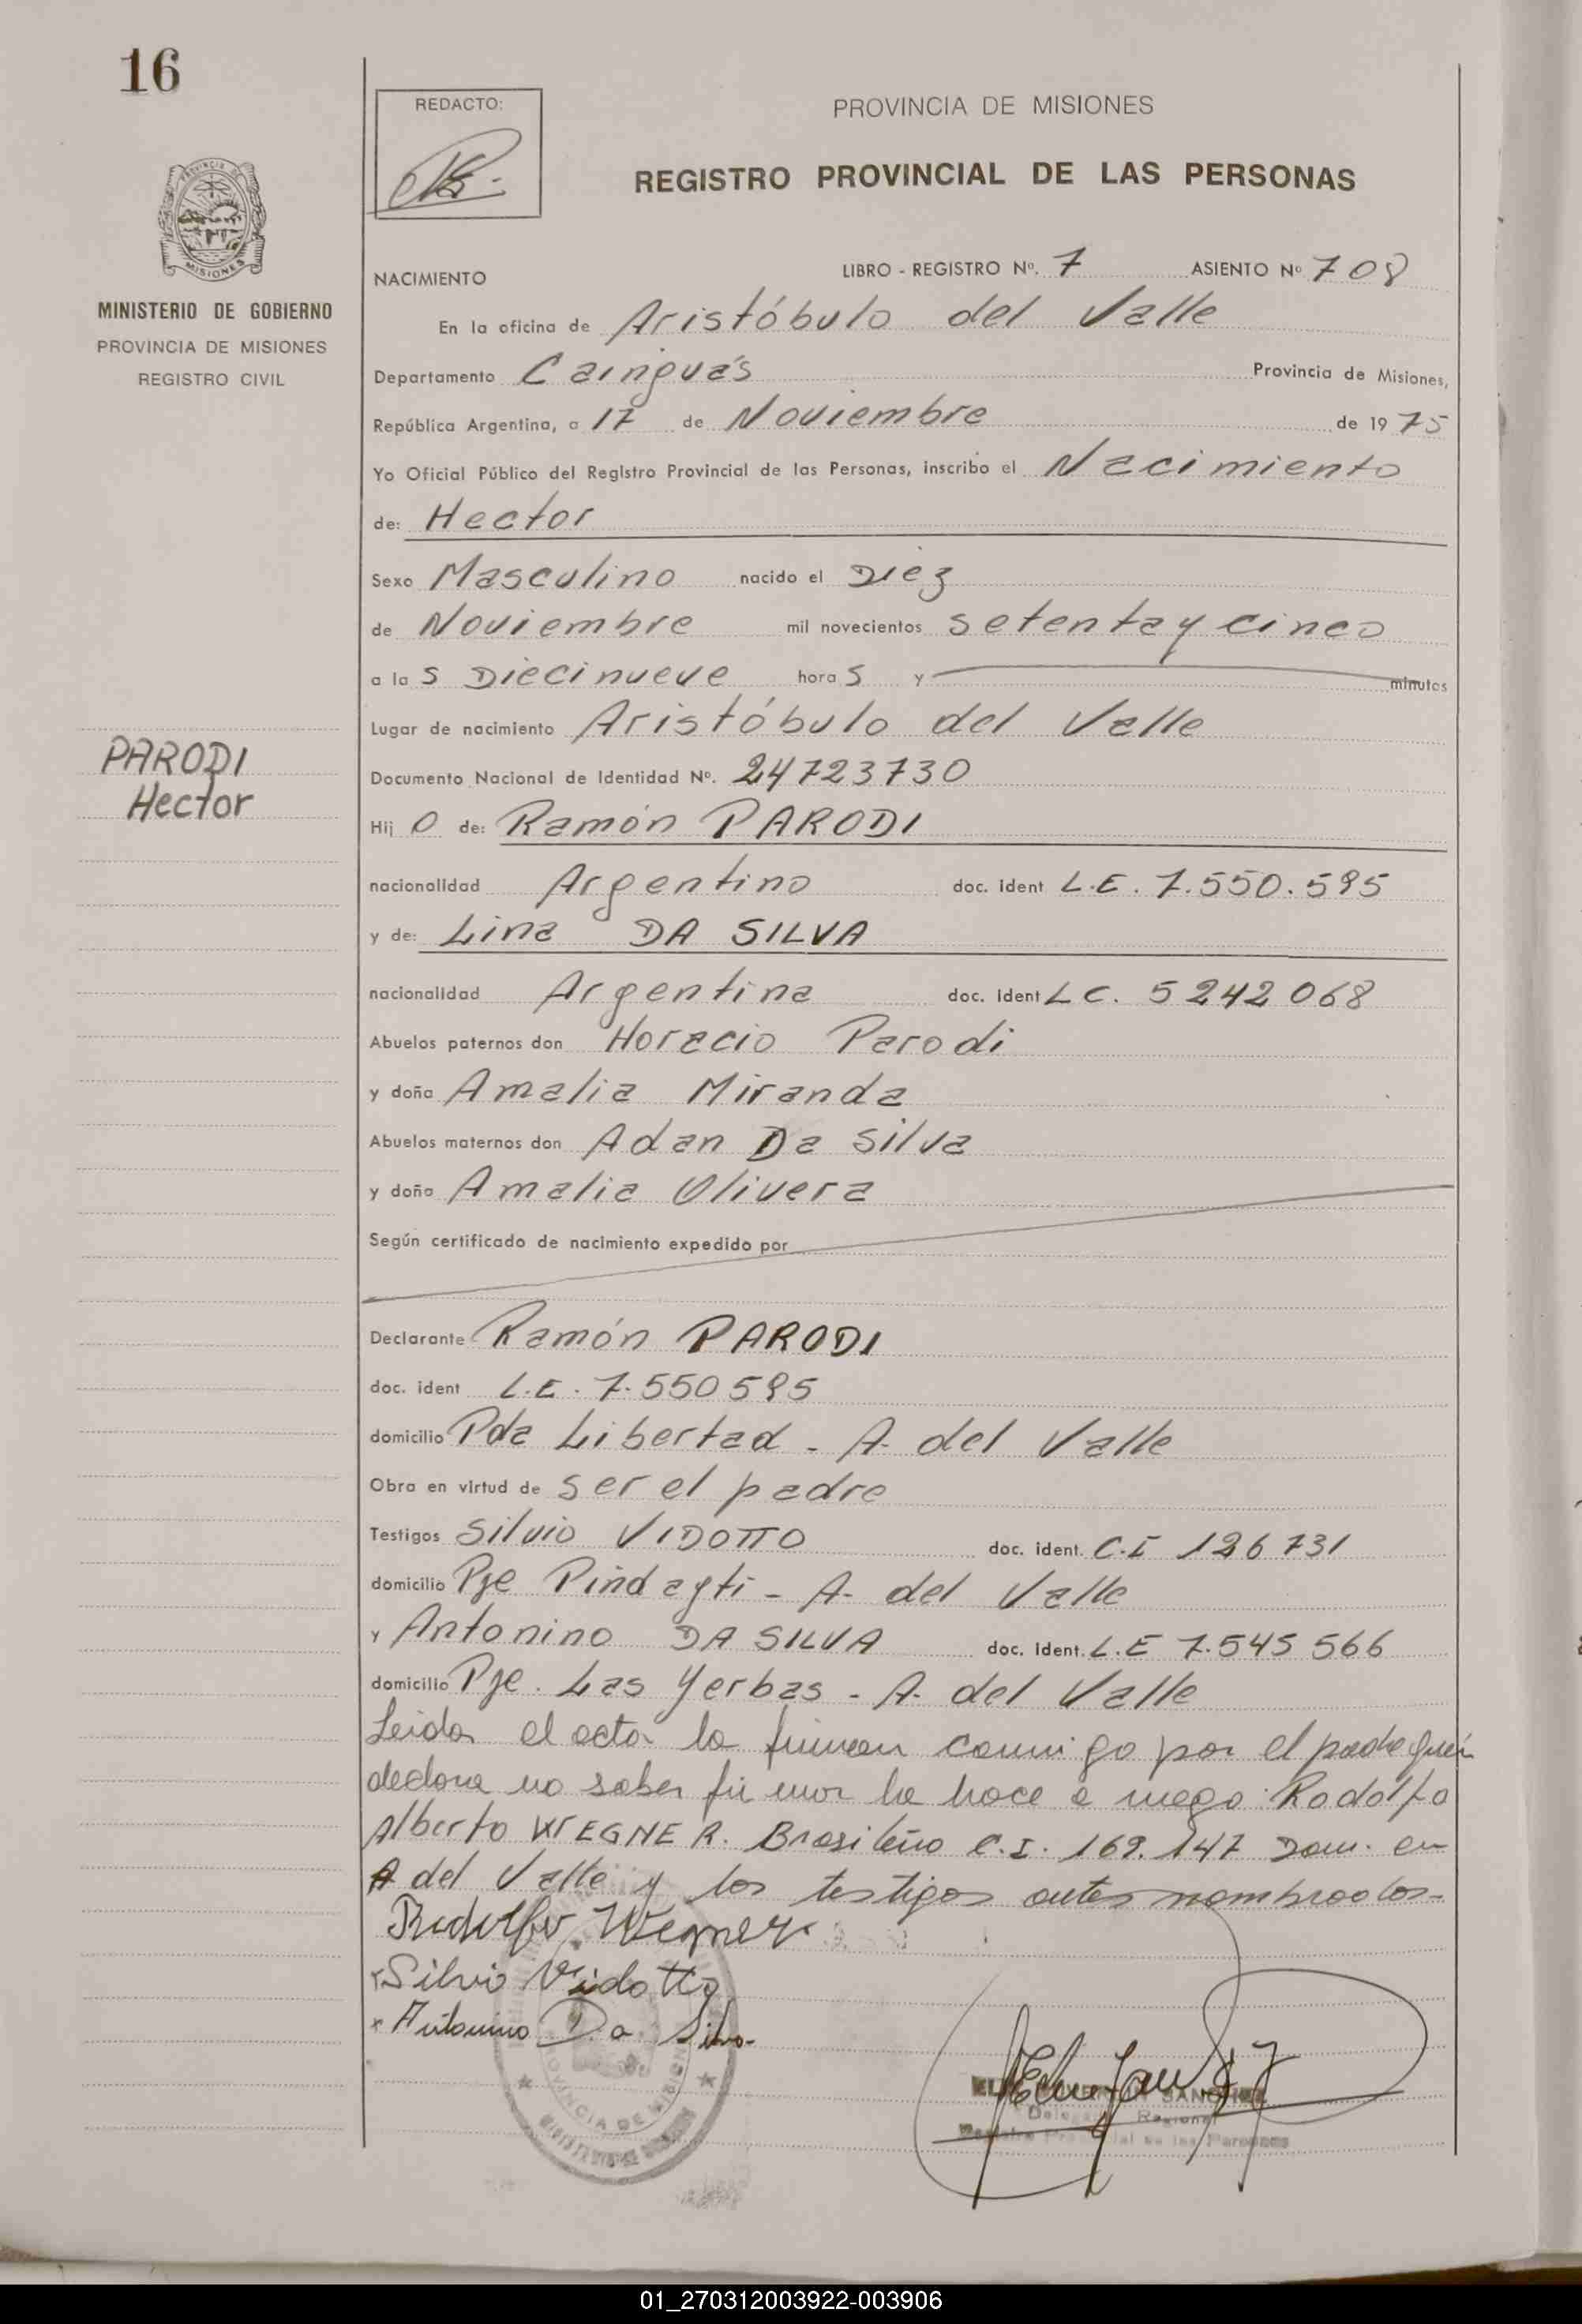 16
REDACTO:
PROVINCIA DE MISIONES
REGISTRO PROVINCIAL DE LAS PERSONAS
MISIONES
MINISTERIO DE GOBIERNO
PROVINCIA DE MISIONES
REGISTRO CIVIL
NACIMIENTO LIBRO - REGISTRO Nº. 7 ASIENTO Nº 708
En la oficina de Aristóbulo del Valle
Departamento Cainguás Provincia de Misiones,
República Argentina, a 17 de Noviembre de 1975
Yo Oficial Público del Registro Provincial de las Personas, inscribo el Nacimiento
de: Hector
Sexo Masculino nacido el Diez
de Noviembre mil novecientos setenta y cinco
a las Diecinueve horas y minutos
Lugar de nacimiento Aristóbulo del Valle
PARODI
Hector
Documento Nacional de Identidad Nº. 24723730
Hijo de: Ramón PARODI
nacionalidad Argentino doc. ident L.E. 7.550.595
y de: Lina DA SILVA
nacionalidad Argentina doc. ident LC. 5242068
Abuelos paternos don Horacio Parodi
y doña Amalia Miranda
Abuelos maternos don Adan Da Silva
y doña Amalia Olivera
Según certificado de nacimiento expedido por
Declarante Ramón PARODI
doc. ident L.E. 7.550595
domicilio Pda Libertad - A. del Valle
Obra en virtud de ser el padre
Testigos Silvio VIDOTTO doc. ident. C.I 126731
domicilio Pje Pindayti - A. del Valle
y Antonino DA SILVA doc. ident. L.E 7.545566
domicilio Pje. Las Yerbas - A. del Valle
Leida el acta la firman conmigo por el padre quien
declara no saber firmar lo hace a ruego: Rodolfo
Alberto WEGNER. Brasileño C.I. 169.147 Dom. en
A del Valle y los testigos antes nombrados-
Rodolfo Wegner
Silvio Vidotto
Antonino Da Silva
SANCHEZ
Delegado Regional
Registro Provincial de las Personas
PROVINCIA DE MISIONES
01_270312003922-003906